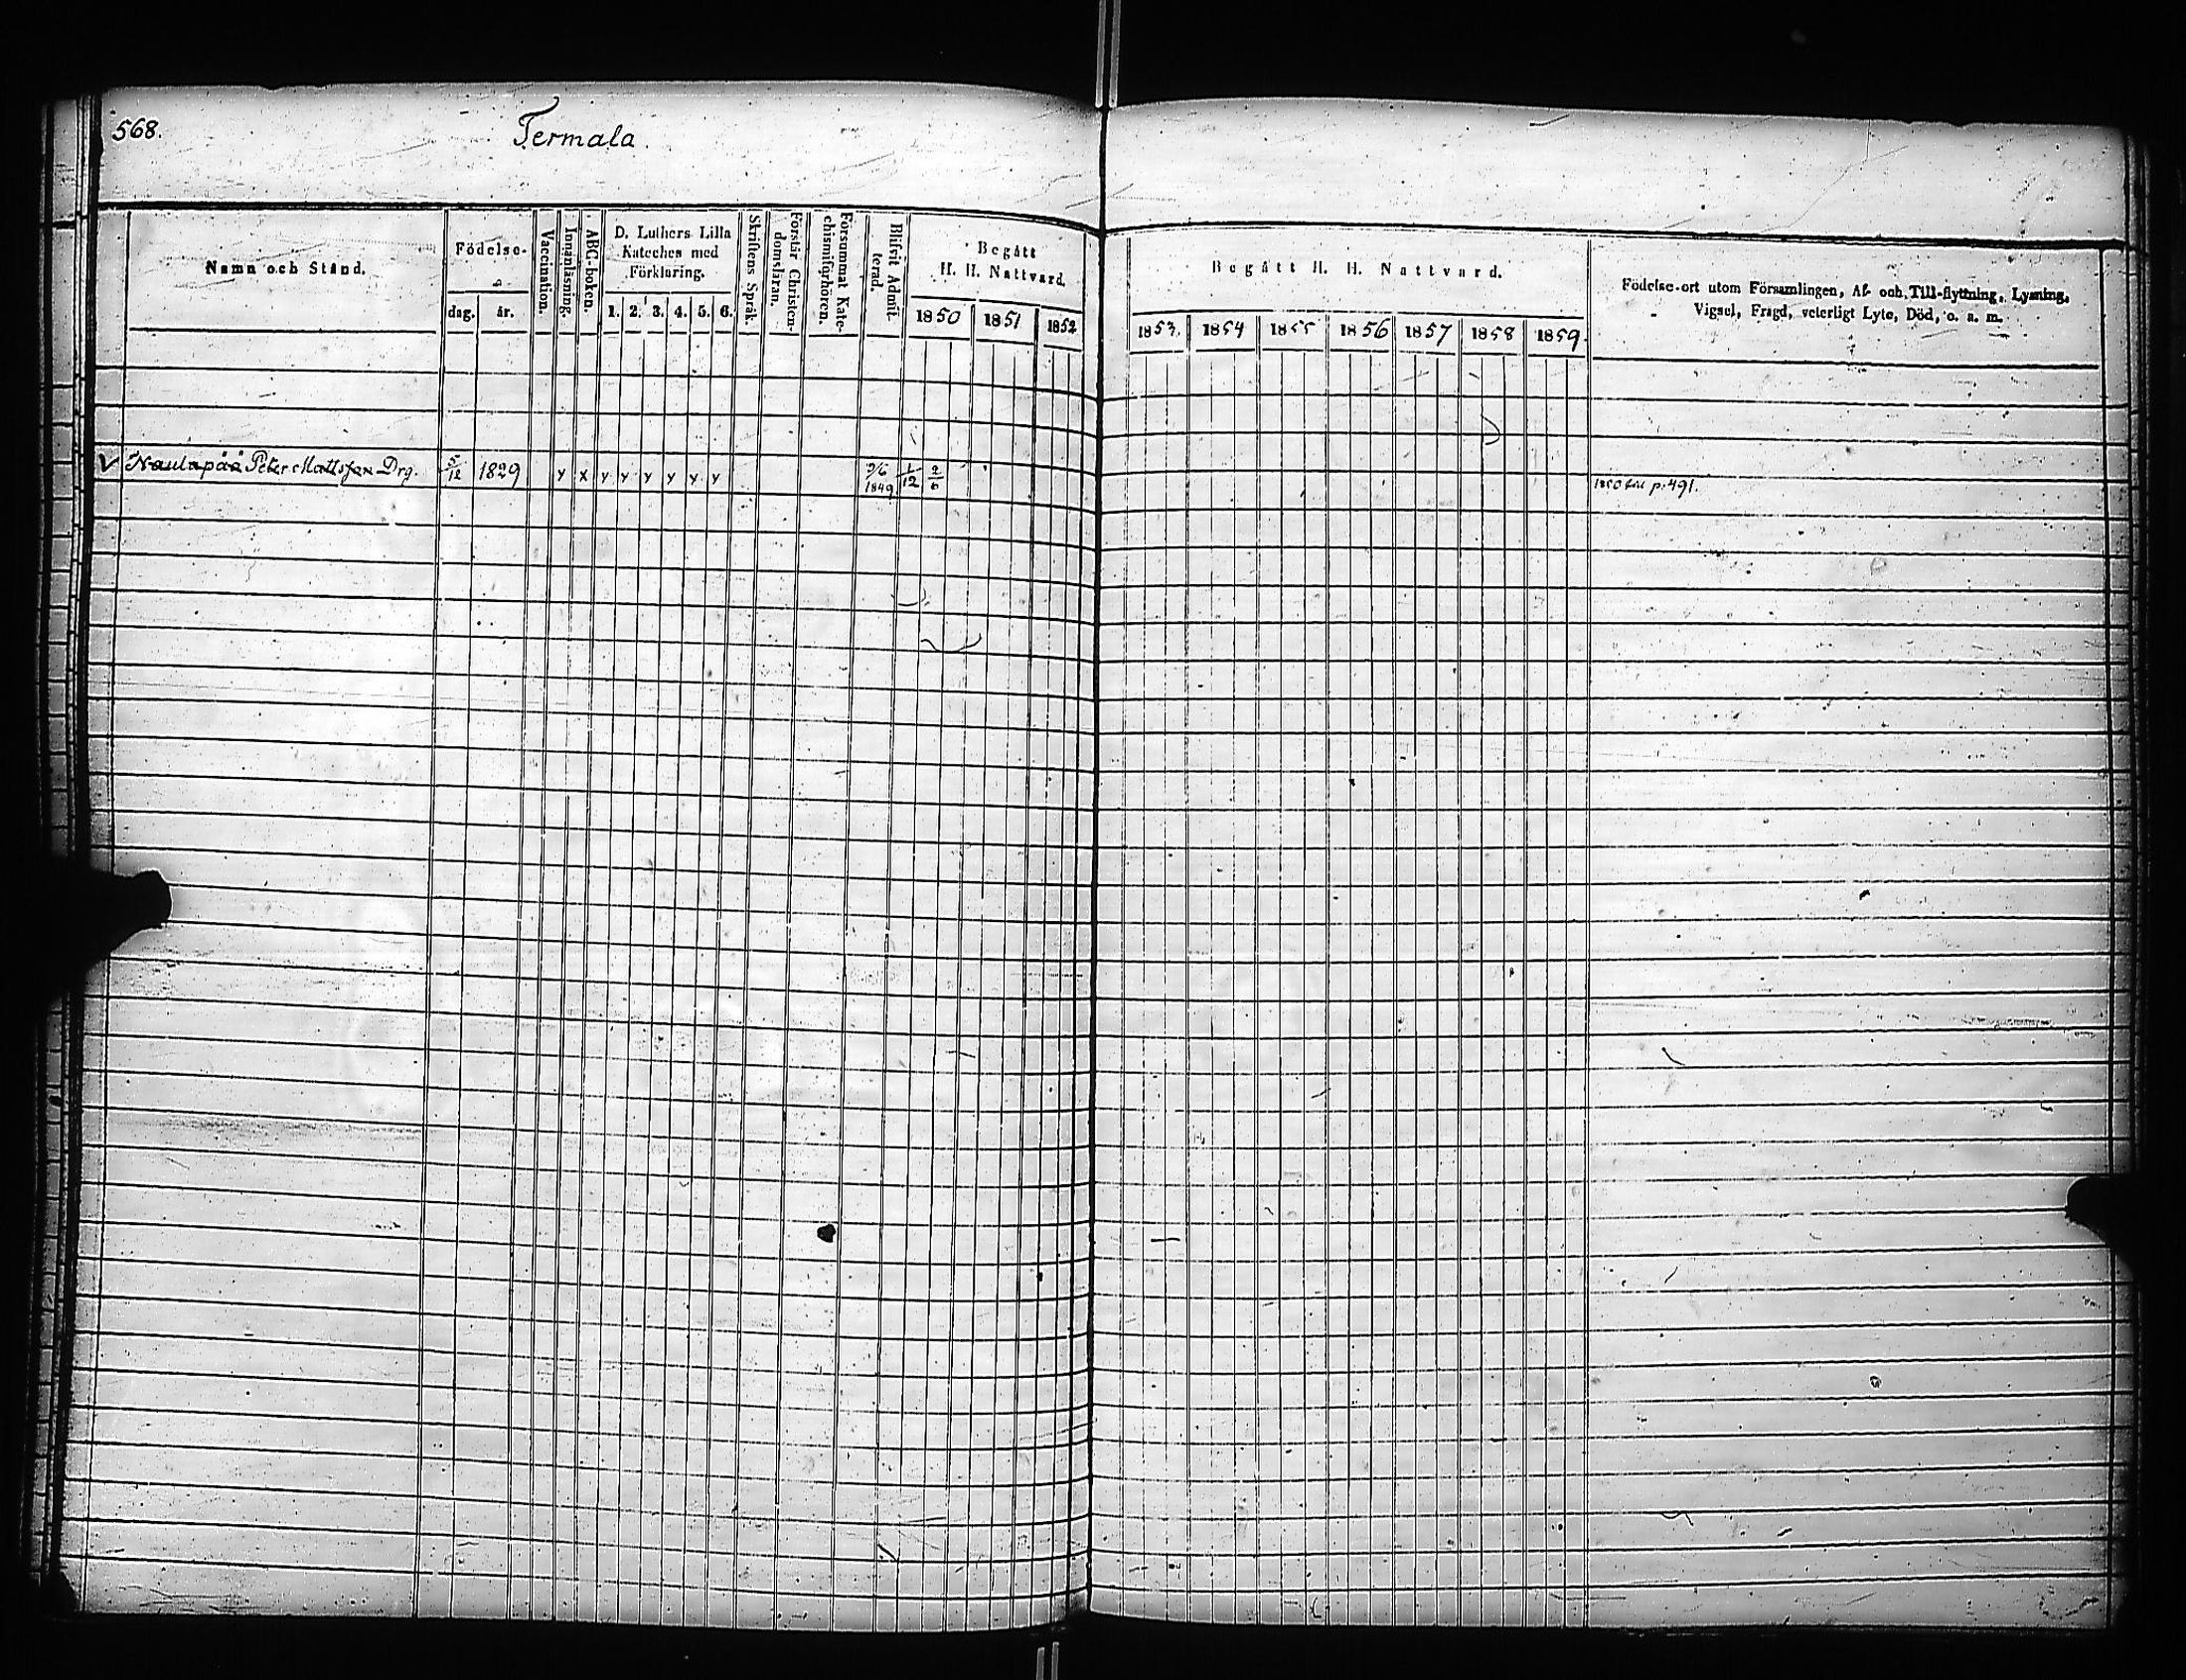 568.
Termala.
Namn och Stånd.
Födelse-
dag. år.
Vaccination.
Innanläsning.
ABC-boken.
D. Luthers Lilla
Kateches med
Förklaring.
1. 2. 3. 4. 5. 6.
Skriftens Språk.
Förstår Christen-
domsläran.
Försummat Kate-
chismiförhören.
Blifvit Admit-
terad.
Begått
H. H. Nattvard.
1850 1851 1852
Begått H. H. Nattvard.
1853. 1854 1855 1856 1857 1858 1859.
Födelse-ort utom Församlingen, Af- och Till-flyttning, Lysning,
Vigsel, Frägd, veterligt Lyte, Död, o. a. m.
V Naulapää Peter Mattsson Drg. 5/12 1829 y x y y y y y y 9/6 1849 1/12 2/6
1850 p. 491.